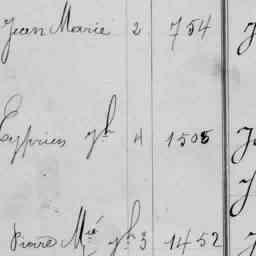 Jean Marie 2 754 J
Cyprien Jh 4 1505 J
J
Pierre Mié Jh 3 1452 J